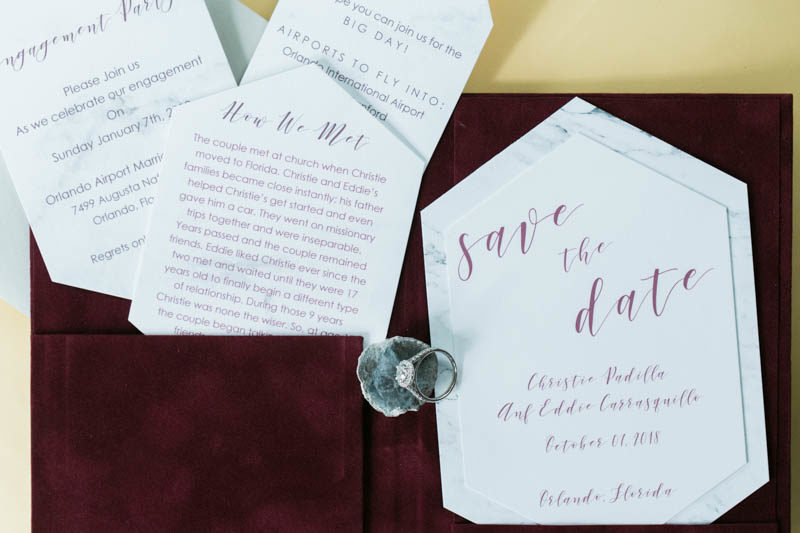 Engagement Party
Please Join us
As we celebrate our engagement
On
Sunday January 7th,
Orlando Airport
7499 Augusta
Orlando,
Regrets only
you can join us for the
BIG DAY!
AIRPORTS TO FLY INTO:
Orlando International Airport
How We Met
The couple met at church when Christie
moved to Florida. Christie and Eddie's
families became close instantly; his father
helped Christie's get started and even
gave him a car. They went on missionary
trips together and were inseparable.
Years passed and the couple remained
friends. Eddie liked Christie ever since the
two met and waited until they were 17
years old to finally begin a different type
of relationship. During those 9 years
Christie was none the wiser. So, at age
the couple began
save
the
date
Christie Padilla
Anf Eddie Carrasquillo
October 01, 2018
Orlando, Florida